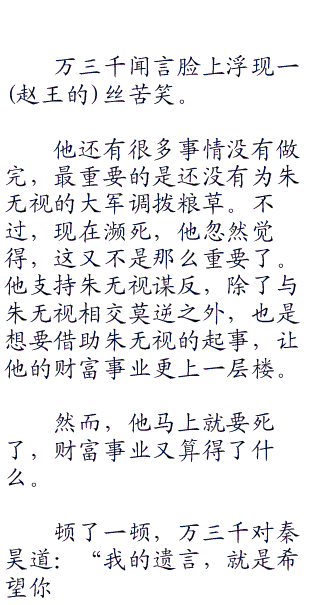 万三千闻言脸上浮现一
(赵王的)丝苦笑。
他还有很多事情没有做
完，最重要的是还没有为朱
无视的大军调拨粮草。不
过，现在濒死，他忽然觉
得，这又不是那么重要了。
他支持朱无视谋反，除了与
朱无视相交莫逆之外，也是
想要借助朱无视的起事，让
他的财富事业更上一层楼。
然而，他马上就要死
了，财富事业又算得了什
么。
顿了一顿，万三千对秦
昊道：“我的遗言，就是希
望你